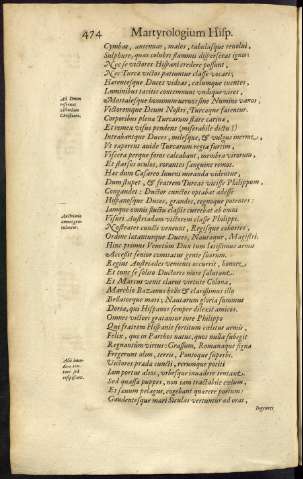 474 Martyrologium Hisp.
Cymbas, antennas, malos, tabulasque revelli,
Sulphure, quas celebre flammis disperserat ignis:
Nec se victores Hispani credere possunt,
Nec Turcae victos patiuntur classe vocari;
Haerentesque Duces vidras, calumque tuentes,
Luminibus tacitis contemnunt undique vires,
Mortalesque hominum
Victoremque Deum Nostri, Turcaque fatentur.
Corporibus plena Turcarum stare carina,
Et remex visus pendens (miserabile dictu!)
Intrabantque Duces, milesque, & vulgus inerme,
Ut raperent avide Turcarum regia furtim,
Viscera perque foros calcabant, membra virorum,
Et sparsos oculos, rorantes sanguine remos.
Hac dum Caesareo Iuveni miranda videntur,
Dum stupet, & fratrem Turcas vicisse Philippum,
Congaudet: Ductor cunctos optabat adesse
Hispanosque Duces, grandes, regnoque potentes:
Iamque omnis justu classis currebat ab omni
Visura Austriadam victorem classe Philippi.
Nostrates cunctis veniunt, Regisque cohortes,
Ordine latantumque Duces, Nautaque, Magistri.
Hinc primus Venetum Dux tum laetissimus armis
Accessit senior comitatus gente suorum.
Regius Austriades venienti occurrit, honore,
Et tunc se solios Ductores inire salutant.
Et Martem venit clarus virtute Colona,
Marchio Bazanus heros & clarissimus ille
Bellatorque mari; Nautarum gloria summus
Doria, qui Hispanos semper dilexit amicos.
Omnes victori gratantur iure Philippi
Qui fratrem Hispanis fortitum coelitus armis,
Felix, qui in Parthos natus, quos nulla subegit
Regnantum virtus: Grassum, Romanaque signa
Fregerunt olim, terris, Pontoque superbi.
Victores prada cuncti, rerumque potiti
Iam portus alios, urbesque invadere tentant.
Sed quassa puppes, non tam tractabile coelum,
Et saevum pelagus, cogebant quaerere portum:
Gaudentesque mari Siculas vertuntur ad oras,
Ingentes
Ad Deum
referunt
Christiani.
Austriaco